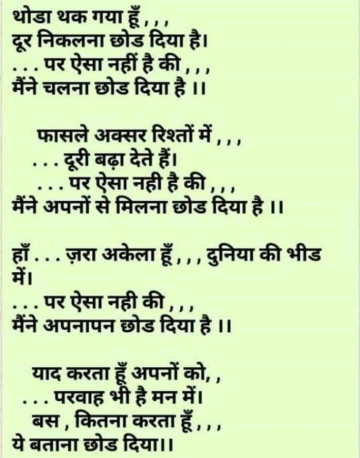 थोडा थक गया हूँ , , ,
दूर निकलना छोड दिया है।
. . . पर ऐसा नहीं है की , , ,
मैंने चलना छोड दिया है ।।
फासले अक्सर रिश्तों में , , ,
. . . दूरी बढ़ा देते हैं।
. . . पर ऐसा नही है की , , ,
मैंने अपनों से मिलना छोड दिया है ।।
हाँ . . . ज़रा अकेला हूँ , , , दुनिया की भीड
में।
. . . पर ऐसा नही की , , ,
मैंने अपनापन छोड दिया है ।।
याद करता हूँ अपनों को, ,
. . . परवाह भी है मन में।
बस , कितना करता हूँ , , ,
ये बताना छोड दिया।।